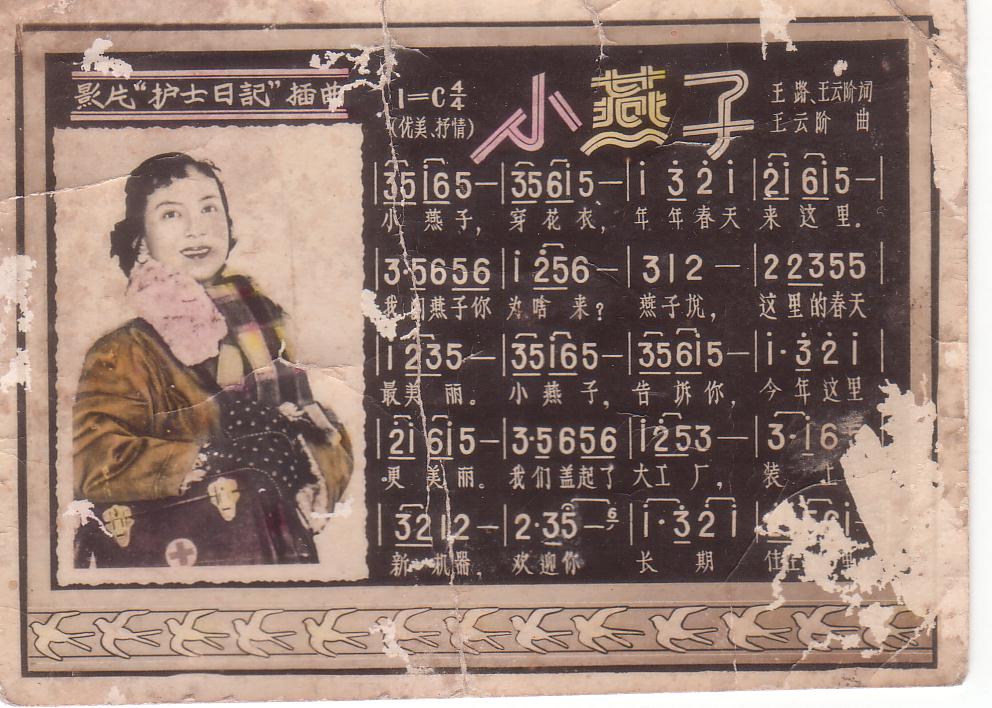 影片“护士日記”插曲
1=C 4/4
(优美、抒情)
小燕子
王路、王云阶词
王云阶 曲
|35 i65—|356i5—|i 3 2 i|2i 6i5—|
小 燕子, 穿花衣, 年年春天 来 这里.
|3·5656|i 256—|312—|22355|
我们燕子你 为啥 来? 燕子说, 这里的春天
|1235—|35i65—|356i5—|i·32i|
最美 丽。 小燕 子, 告 诉你, 今年这里
|2i6i5—|3·5656|i253—|3·i6
更 美丽。 我们盖起了 大工 厂, 装 上
|3212—|2·35—6|i·32i|
新 机器, 欢迎你 长 期 住